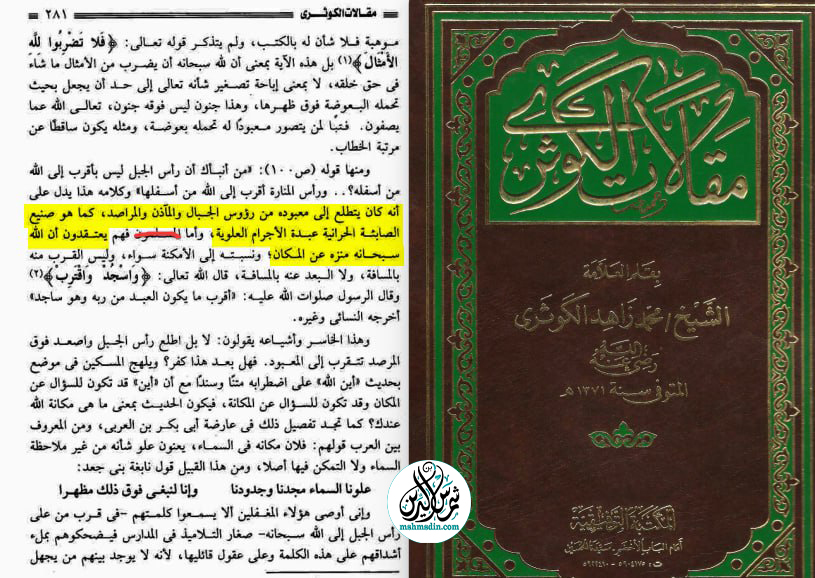 مقالات الكوثرى
٢٨١
موهبة فلا شأن له بالكتب، ولم يتذكر قوله تعالى: ﴿فَلا تَضْرِبُوا لِلَّه
الأَمْثَالَ﴾(١) بل هذه الآية بمعنى أن لله سبحانه أن يضرب من الأمثال ما شاء
فى حق خلقه، لا بمعنى إباحة تصغير شأنه تعالى إلى حد أن يجعل بحيث
تحمله البعوضة فوق ظهرها، وهذا جنون ليس فوقه جنون، تعالى الله عما
يصفون. فتبًا لمن يتصور معبودًا له تحمله بعوضة، ومثله يكون ساقطًا عن
مرتبة الخطاب.
ومنها قوله (ص١٠٠): «من أنبأك أن رأس الجبل ليس بأقرب إلى الله
من أسفله؟.. ورأس المنارة أقرب إلى الله من أسفلها» وكلامه هذا يدل على
أنه كان يتطلع إلى معبوده من رؤوس الجبال والمآذن والمراصد، كما هو صنيع
الصابئة الحرانية عبدة الأجرام العلوية، وأما المسلمون فهم يعتقدون أن الله
سبحانه منزه عن المكان؛ ونسبته إلى الأمكنة سواء، وليس القرب منه
بالمسافة، ولا البعد عنه بالمسافة، قال الله تعالى: ﴿وَاسْجُدْ وَاقْتَرِبْ﴾(٢)
وقال الرسول صلوات الله عليه: «أقرب ما يكون العبد من ربه وهو ساجد»
أخرجه النسائى وغيره.
وهذا الخاسر وأشياعه يقولون: لا بل اطلع رأس الجبل واصعد فوق
المرصد تتقرب إلى المعبود. فهل بعد هذا كفر؟ ويلهج المسكين فى موضع
بحديث «أين الله» على اضطرابه متنًا وسندًا مع أن «أين» قد تكون للسؤال عن
المكان وقد تكون للسؤال عن المكانة، فيكون الحديث بمعنى ما هى مكانة الله
عندك؟ كما تجد تفصيل ذلك فى عارضة أبى بكر بن العربى، ومن المعروف
بين العرب قولهم: فلان مكانه فى السماء، يعنون علو شأنه من غير ملاحظة
السماء ولا التمكن فيها أصلا، ومن هذا القبيل قول نابغة بنى جعد:
علونا السماء مجدنا وجدودنا وإنا لنبغى فوق ذلك مظهرا
وإنى أوصى هؤلاء المغفلين ألا يسمعوا كلمتهم -فى قرب من على
رأس الجبل إلى الله سبحانه- صغار التلاميذ فى المدارس فيضحكوهم بملء
أشداقهم على هذه الكلمة وعلى عقول قائليها، لأنه لا يوجد بينهم من يجهل
مقالات الكوثرى
بقلم العلامة
الشيخ/ محمد زاهد الكوثرى
رضى الله عنه
المتوفى سنة ١٣٧١هـ
المكتبة التوفيقية
أمام الباب الأخضر - سيدنا الحسين
شمس الدين
mahmadin.com